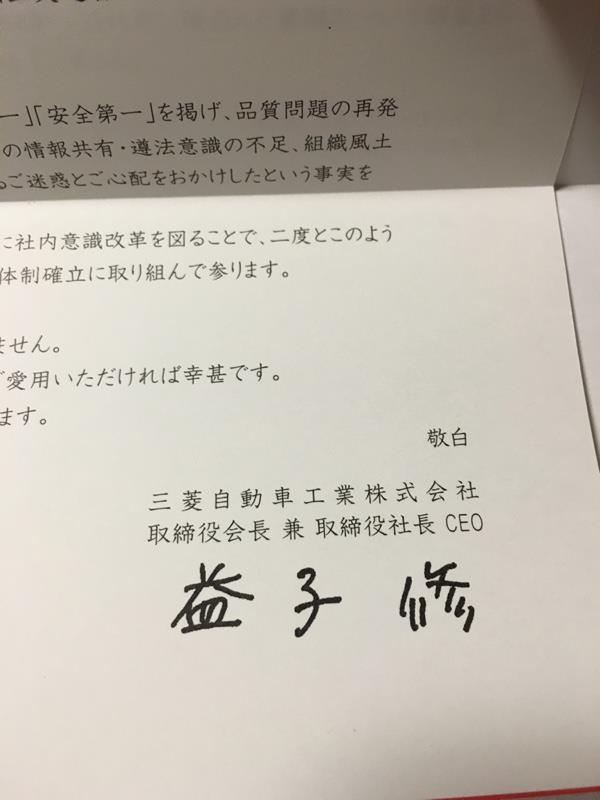 一」「安全第一」を掲げ、品質問題の再発
の情報共有・遵法意識の不足、組織風土
るご迷惑とご心配をおかけしたという事実を
に社内意識改革を図ることで、二度とこのよう
体制確立に取り組んで参ります。
ません。
ご愛用いただければ幸甚です。
ます。
敬白
三菱自動車工業株式会社
取締役会長 兼 取締役社長 CEO
益子 修